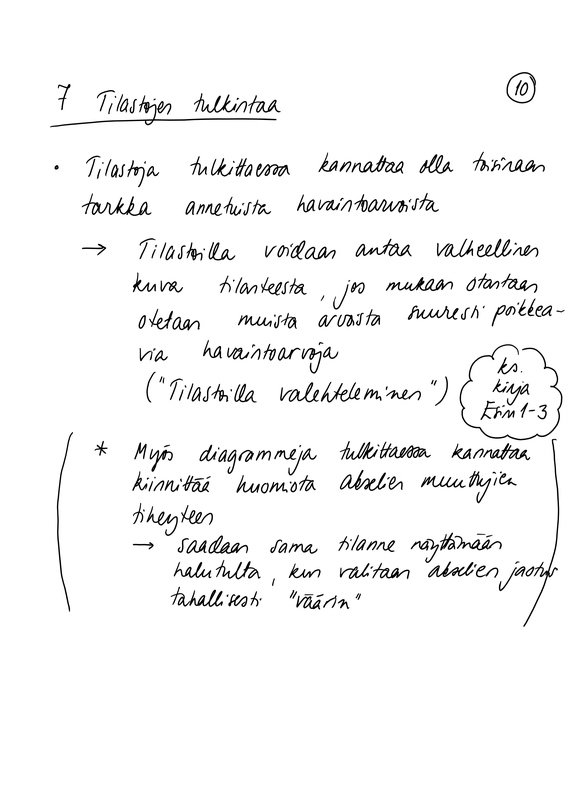 7 Tilastojen tulkintaa
10
• Tilastoja tulkittaessa kannattaa olla toisinaan
tarkka annetuista havaintoarvoista
→ Tilastoilla voidaan antaa valheellinen
kuva tilanteesta, jos mukaan otantaan
otetaan muista arvoista suuresti poikkea-
via havaintoarvoja
("Tilastoilla valehteleminen")
ks.
kirja
Esim 1-3
* Myös diagrammeja tulkittaessa kannattaa
kiinnittää huomiota akselien muuttujien
tiheyteen
→ saadaan sama tilanne näyttämään
halutulta, kun valitaan akselien jaotus
tahallisesti "väärin"